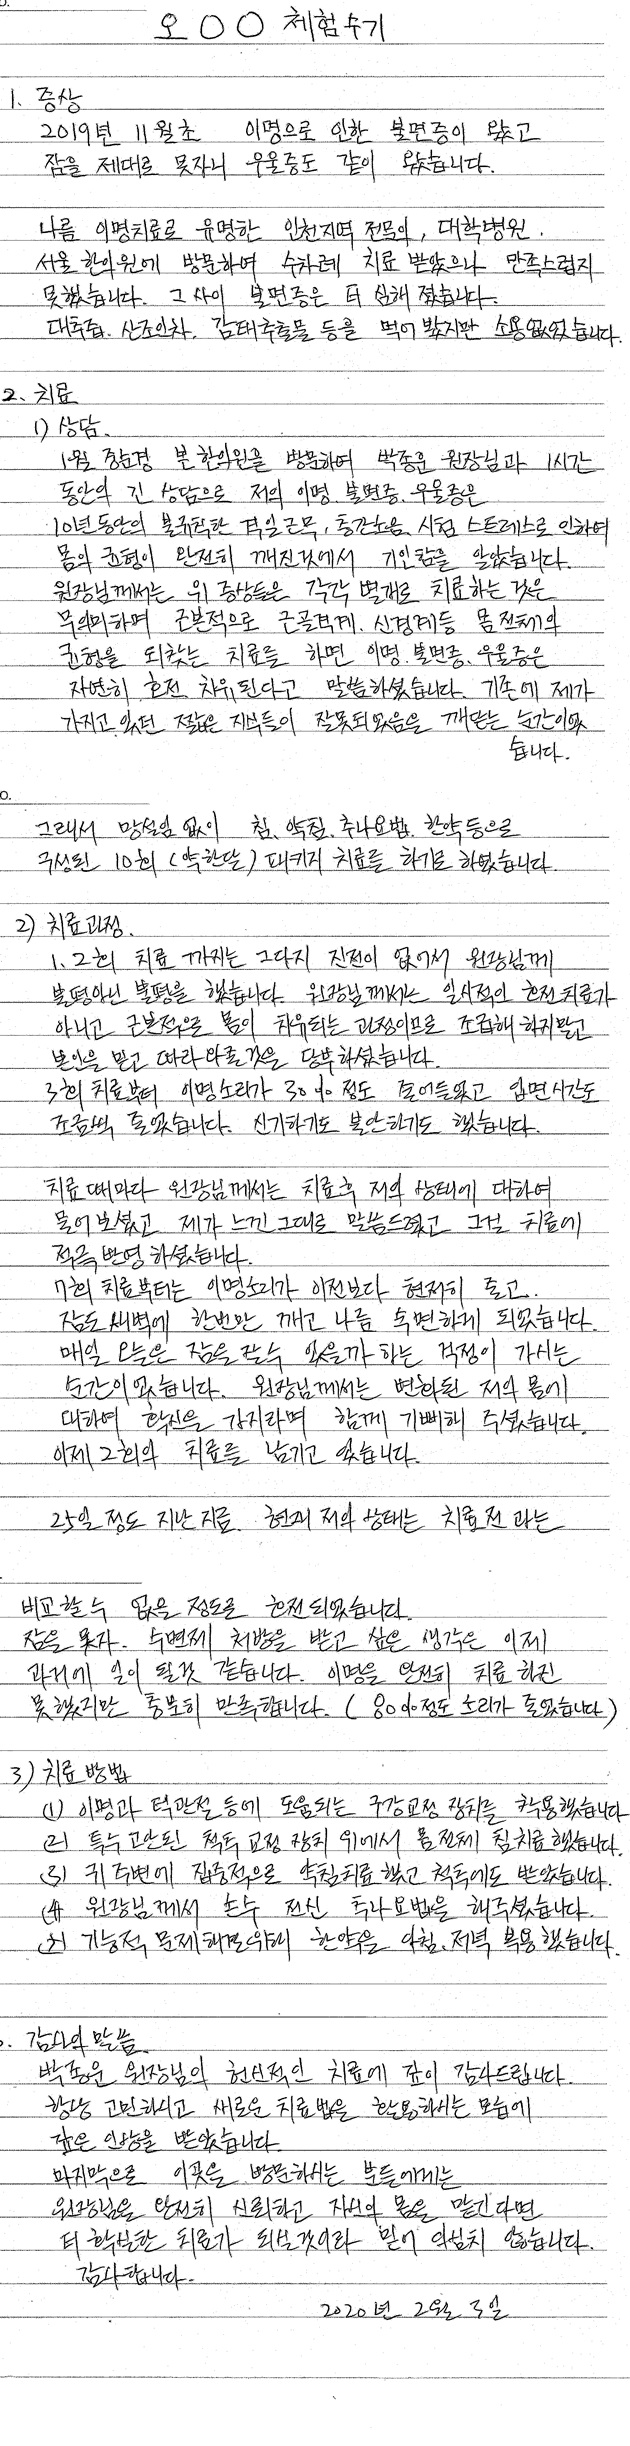 오○○ 체험수기
1. 증상
2019년 11월초 이명으로 인한 불면증이 왔고
잠을 제대로 못자니 우울증도 같이 왔습니다.
나름 이명치료로 유명한 인천지역 전문의, 대학병원.
서울 한의원에 방문하여 수차례 치료 받았으나 만족스럽지
못했습니다. 그 사이 불면증은 더 심해 졌습니다.
대추즙. 산조인차. 감태추출물 등을 먹어 봤지만 소용없었습니다.
2. 치료
1) 상담.
1월 중순경 본 한의원을 방문하여 박종운 원장님과 1시간
동안의 긴 상담으로 저의 이명. 불면증. 우울증은
10년동안의 불규칙한 격일근무, 층간소음. 시험 스트레스로 인하여
몸의 균형이 완전히 깨진것에서 기인함을 알았습니다.
원장님께서는 위 증상들은 각각 별개로 치료하는 것은
무의미하며 근본적으로 근골격계. 신경계등 몸 전체의
균형을 되찾는 치료를 하면 이명. 불면증. 우울증은
자연히 호전 치유된다고 말씀하셨습니다. 기존에 제가
가지고 있던 짧은 지식들이 잘못되었음을 깨닫는 순간이었
습니다.
그래서 망설임 없이 침. 약침. 추나요법. 한약등으로
구성된 10회 (약한달) 패키지 치료를 하기로 하였습니다.
2) 치료과정.
1. 2회 치료 까지는 그다지 진전이 없어서 원장님께
불평아닌 불평을 했습니다. 원장님께서는 일시적인 호전치료가
아니고 근본적으로 몸이 치유되는 과정이므로 조급해 하지말고
본인을 믿고 따라와줄것을 당부하셨습니다.
3회 치료부터 이명소리가 30% 정도 줄어들었고 입면시간도
조금씩 줄었습니다. 신기하기도 불안하기도 했습니다.
치료 때마다 원장님께서는 치료후 저의 상태에 대하여
물어 보셨고 제가 느낀 그대로 말씀드렸고 그걸 치료에
적극 반영 하셨습니다.
7회 치료부터는 이명소리가 이전보다 현저히 줄고.
잠도 새벽에 한번만 깨고 나름 숙면하게 되었습니다.
매일 오늘은 잠을 잘수 있을까 하는 걱정이 가시는
순간이었습니다. 원장님께서는 변화된 저의 몸에
대하여 확신을 가지라며 함께 기뻐해 주셨습니다.
이제 2회의 치료를 남기고 있습니다.
25일 정도 지난 지금. 현재 저의 상태는 치료전 과는
비교할수 없을 정도로 호전되었습니다.
잠을 못자. 수면제 처방을 받고 싶은 생각은 이제
과거에 일이 될것 같습니다. 이명을 완전히 치료 하진
못했지만 충분히 만족합니다. (80%정도 소리가 줄었습니다)
3) 치료 방법
(1) 이명과 턱관절 등에 도움되는 구강교정 장치를 착용했습니다
(2) 특수 고안된 척추 교정 장치 위에서 몸전체 침치료했습니다.
(3) 귀 주변에 집중적으로 약침치료했고 척추에도 받았습니다.
(4) 원장님께서 손수 전신 추나요법을 해주셨습니다.
(5) 기능적 문제해결위해 한약을 아침. 저녁 복용했습니다.
. 감사의 말씀.
박종운 원장님의 헌신적인 치료에 깊이 감사드립니다.
항상 고민하시고 새로운 치료법을 활용하시는 모습에
깊은 인상을 받았습니다.
마지막으로 이곳을 방문하시는 분들에게는
원장님을 완전히 신뢰하고 자신의 몸을 맡긴다면
더 확실한 치료가 되실것이라 믿어 의심치 않습니다.
감사합니다.
2020년 2월 3일